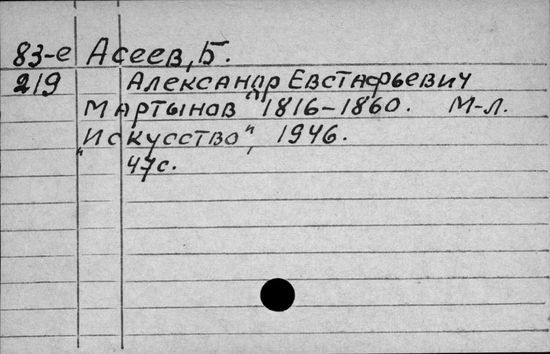 83-е Асеев, Б.
219 Александр Евстафьевич
Мартынов "1816-1860. М-Л.
"Искусство", 1946.
47с.